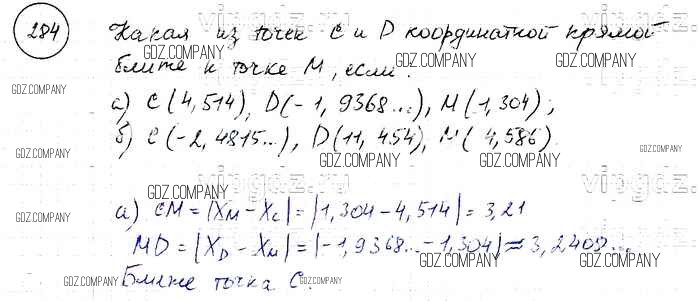 284 Какая из точек C и D координатной прямой
ближе к точке M, если:
а) C(4,514), D(-1,9368...), M(1,304);
б) C(-2,4815...), D(11,454), M(4,586)
а) CM = |X_M - X_C| = |1,304 - 4,514| = 3,21
MD = |X_D - X_M| = |-1,9368... - 1,304| ≈ 3,2409...
Ближе точка C.
GDZ.COMPANY
vipgdz.ru